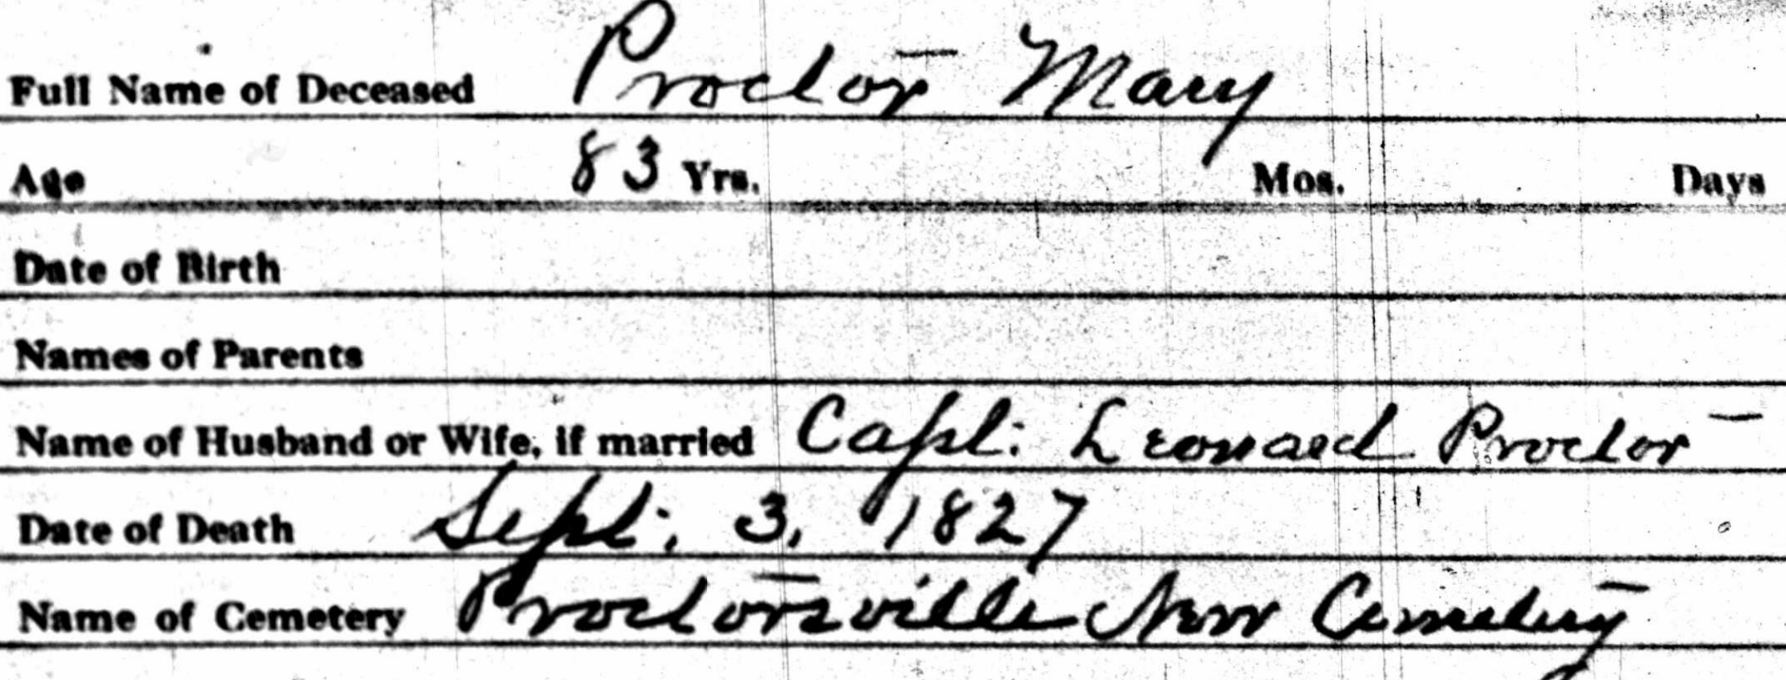 Full Name of Deceased Proctor Mary
Age 83 Yrs. Mos. Days
Date of Birth
Names of Parents
Name of Husband or Wife, if married Capt: Leonard Proctor
Date of Death Sept: 3, 1827
Name of Cemetery Proctorsville New Cemetery